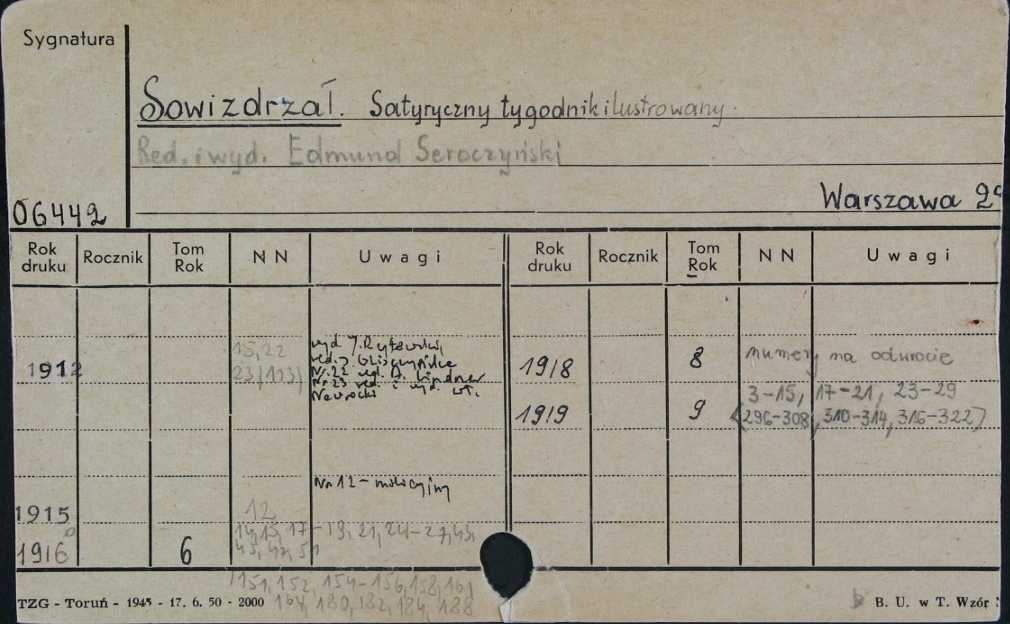 Sygnatura
Sowizdrzał. Satyryczny tygodnik ilustrowany.
Red. i wyd. Edmund Seroczyński
Warszawa 2°
06442
Rok druku Rocznik Tom Rok NN Uwagi Rok druku Rocznik Tom Rok NN Uwagi
1912 15, 22
23 (113)
Nr. 22 red.
Nr. 23 red. i wyd.
Nawrocki
1918 8 numery na odwrocie
1919 9 3-15, 17-21, 23-29
(296-308, 310-314, 316-322)
1915 12 Nr 12
1916 6 14, 15, 17-19, 21, 24-27, 43,
151, 152, 154-156, 158, 161
164, 180, 182, 184, 188
TZG - Toruń - 1945 - 17. 6. 50 - 2000
B. U. w T. Wzór